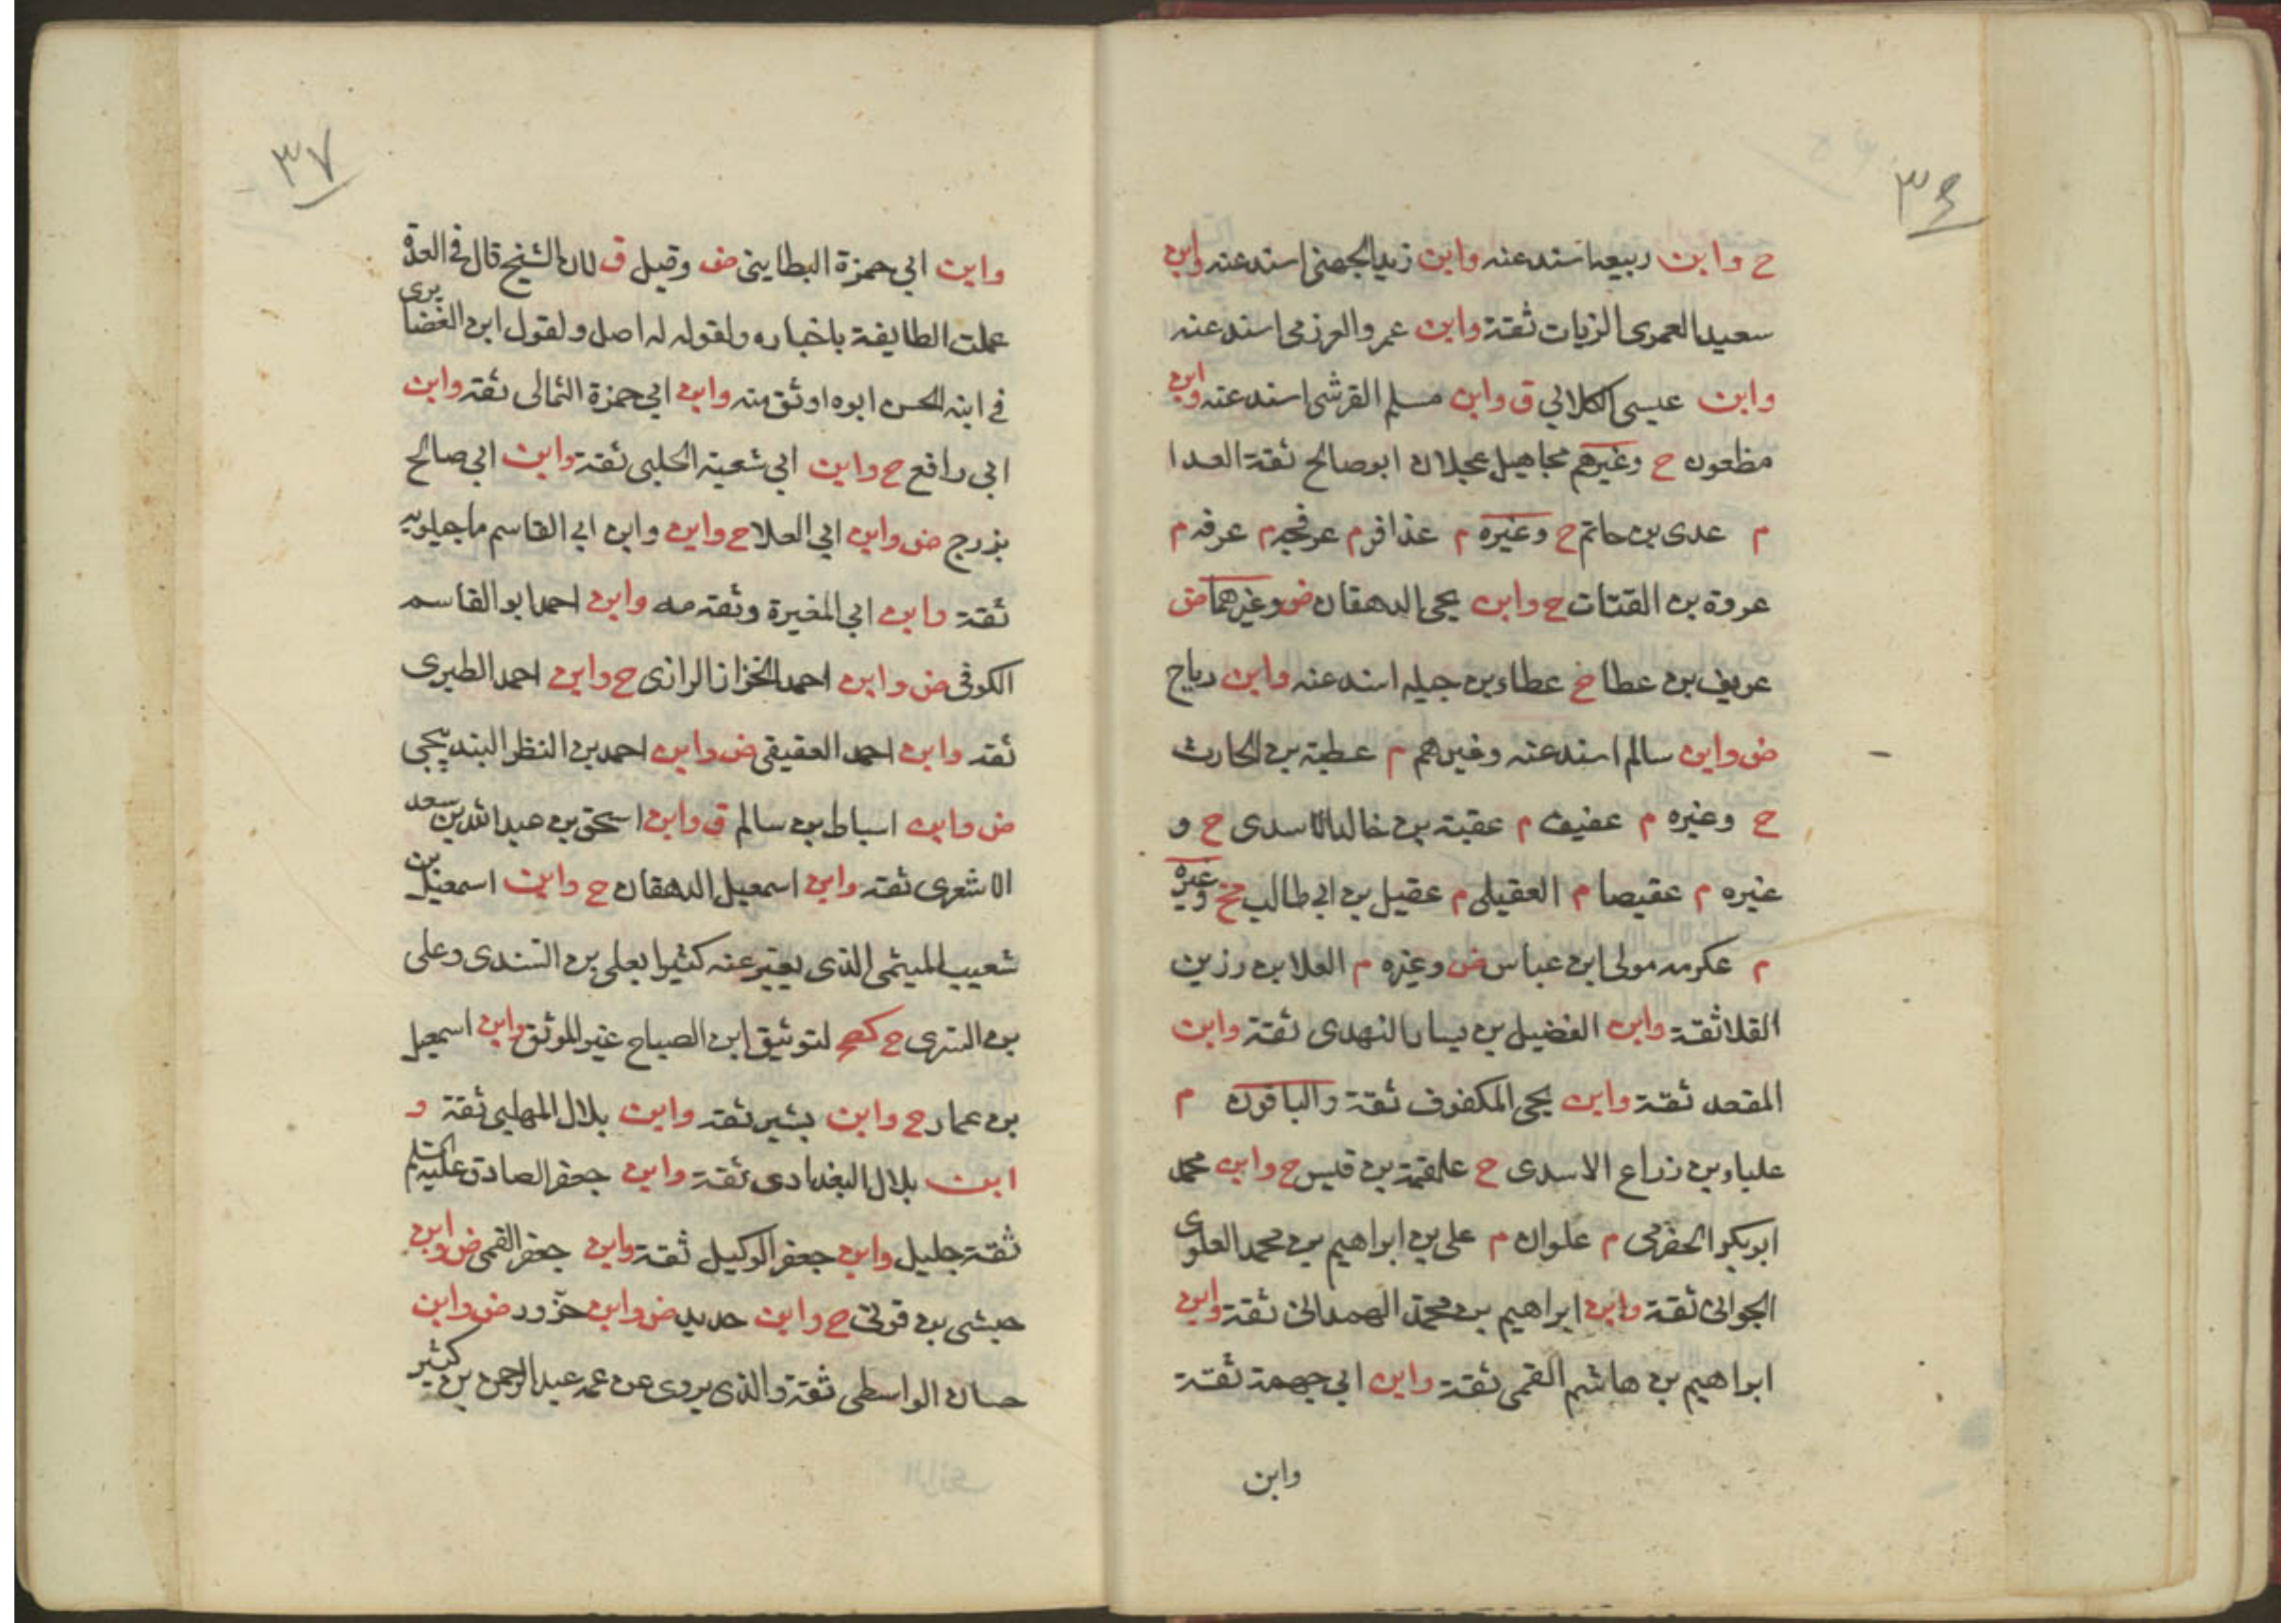 ٣٦
ح وابن ربيعه اسند عنه وابن زيد الجهني اسند عنه وابن
سعيد العمرى الزيات ثقة وابن عمرو العرزمى اسند عنه
وابن عيسى الكلابي ق وابن مسلم القرشى اسند عنه وابن
مظعون ح وغيرهم مجاهيل عجلان ابو صالح ثقة العدا
م عدى بن حاتم ح وغيره م عذافر م عرفجه م عرفه م
عروة بن القتات ح وابن يحيى الدهقان ض وغيرهما ض
عريف بن عطا ح عطاء بن جبله اسند عنه وابن رباح
ض وابن سالم اسند عنه وغيرهم م عطية بن الحارث
ح وغيره م عفيف م عقبة بن خالد الاسدى ح و
غيره م عقيصا م العقيلى م عقيل بن ابي طالب وغيره
م عكرمه مولى ابن عباس ض وغيره م العلا بن رزين
القلا ثقة وابن الفضيل بن يسار النهدى ثقة وابن
المقعد ثقة وابن يحيى المكفوف ثقة والباقون م
علباء بن زراع الاسدى ح علقمة بن قيس ح وابن محمد
ابو بكر الحضرمى م علوان م على بن ابراهيم بن محمد العلوى
الجوانى ثقة وابن ابراهيم بن محمد الهمدانى ثقة وابن
ابراهيم بن هاشم القمى ثقة وابن ابي جهمة ثقة
وابن
٣٧
وابن ابي حمزة البطاينى ض وقيل ق لان الشيخ قال فى العدة
عملت الطايفة باخباره ولقوله له اصل ولقول ابن الغضايرى
في ابنه الحسن ابوه اوثق منه وابن ابي حمزة الثمالى ثقة وابن
ابي رافع ح وابن ابي شعبة الحلبى ثقة وابن ابي صالح
بزرج ض وابن ابي العلا ح وابن وابن ابي القاسم ماجيلويه
ثقة وابن ابي المغيرة وثقه مه وابن احمد ابو القاسم
الكوفى ض وابن احمد الخزاز الرازى ح وابن احمد الطبرى
ثقه وابن احمد العقيقى ض وابن احمد بن النظر البنديجى
ض وابن اسباط بن سالم ق وابن اسحق بن عبد الله بن سعد
الاشعرى ثقه وابن اسمعيل الدهقان ح وابن اسمعيل بن
شعيب الميثمى الذى يعبر عنه كثيرا بعلى بن السندى وعلى
بن السرى ح كصح لتوثيق ابن الصباح غير الموثق وابن اسمعيل
بن عمار ح وابن بشير ثقه وابن بلال المهلبى ثقة و
ابن بلال البغدادى ثقة وابن جعفر الصادق عليه السلم
ثقة جليل وابن جعفر الوكيل ثقة وابن جعفر القمى ض وابن
حبشى بن قونى ح وابن حديد ض وابن حزور ض وابن
حسان الواسطى ثقة والذى يروى عن عمه عبد الرحمن بن كثير